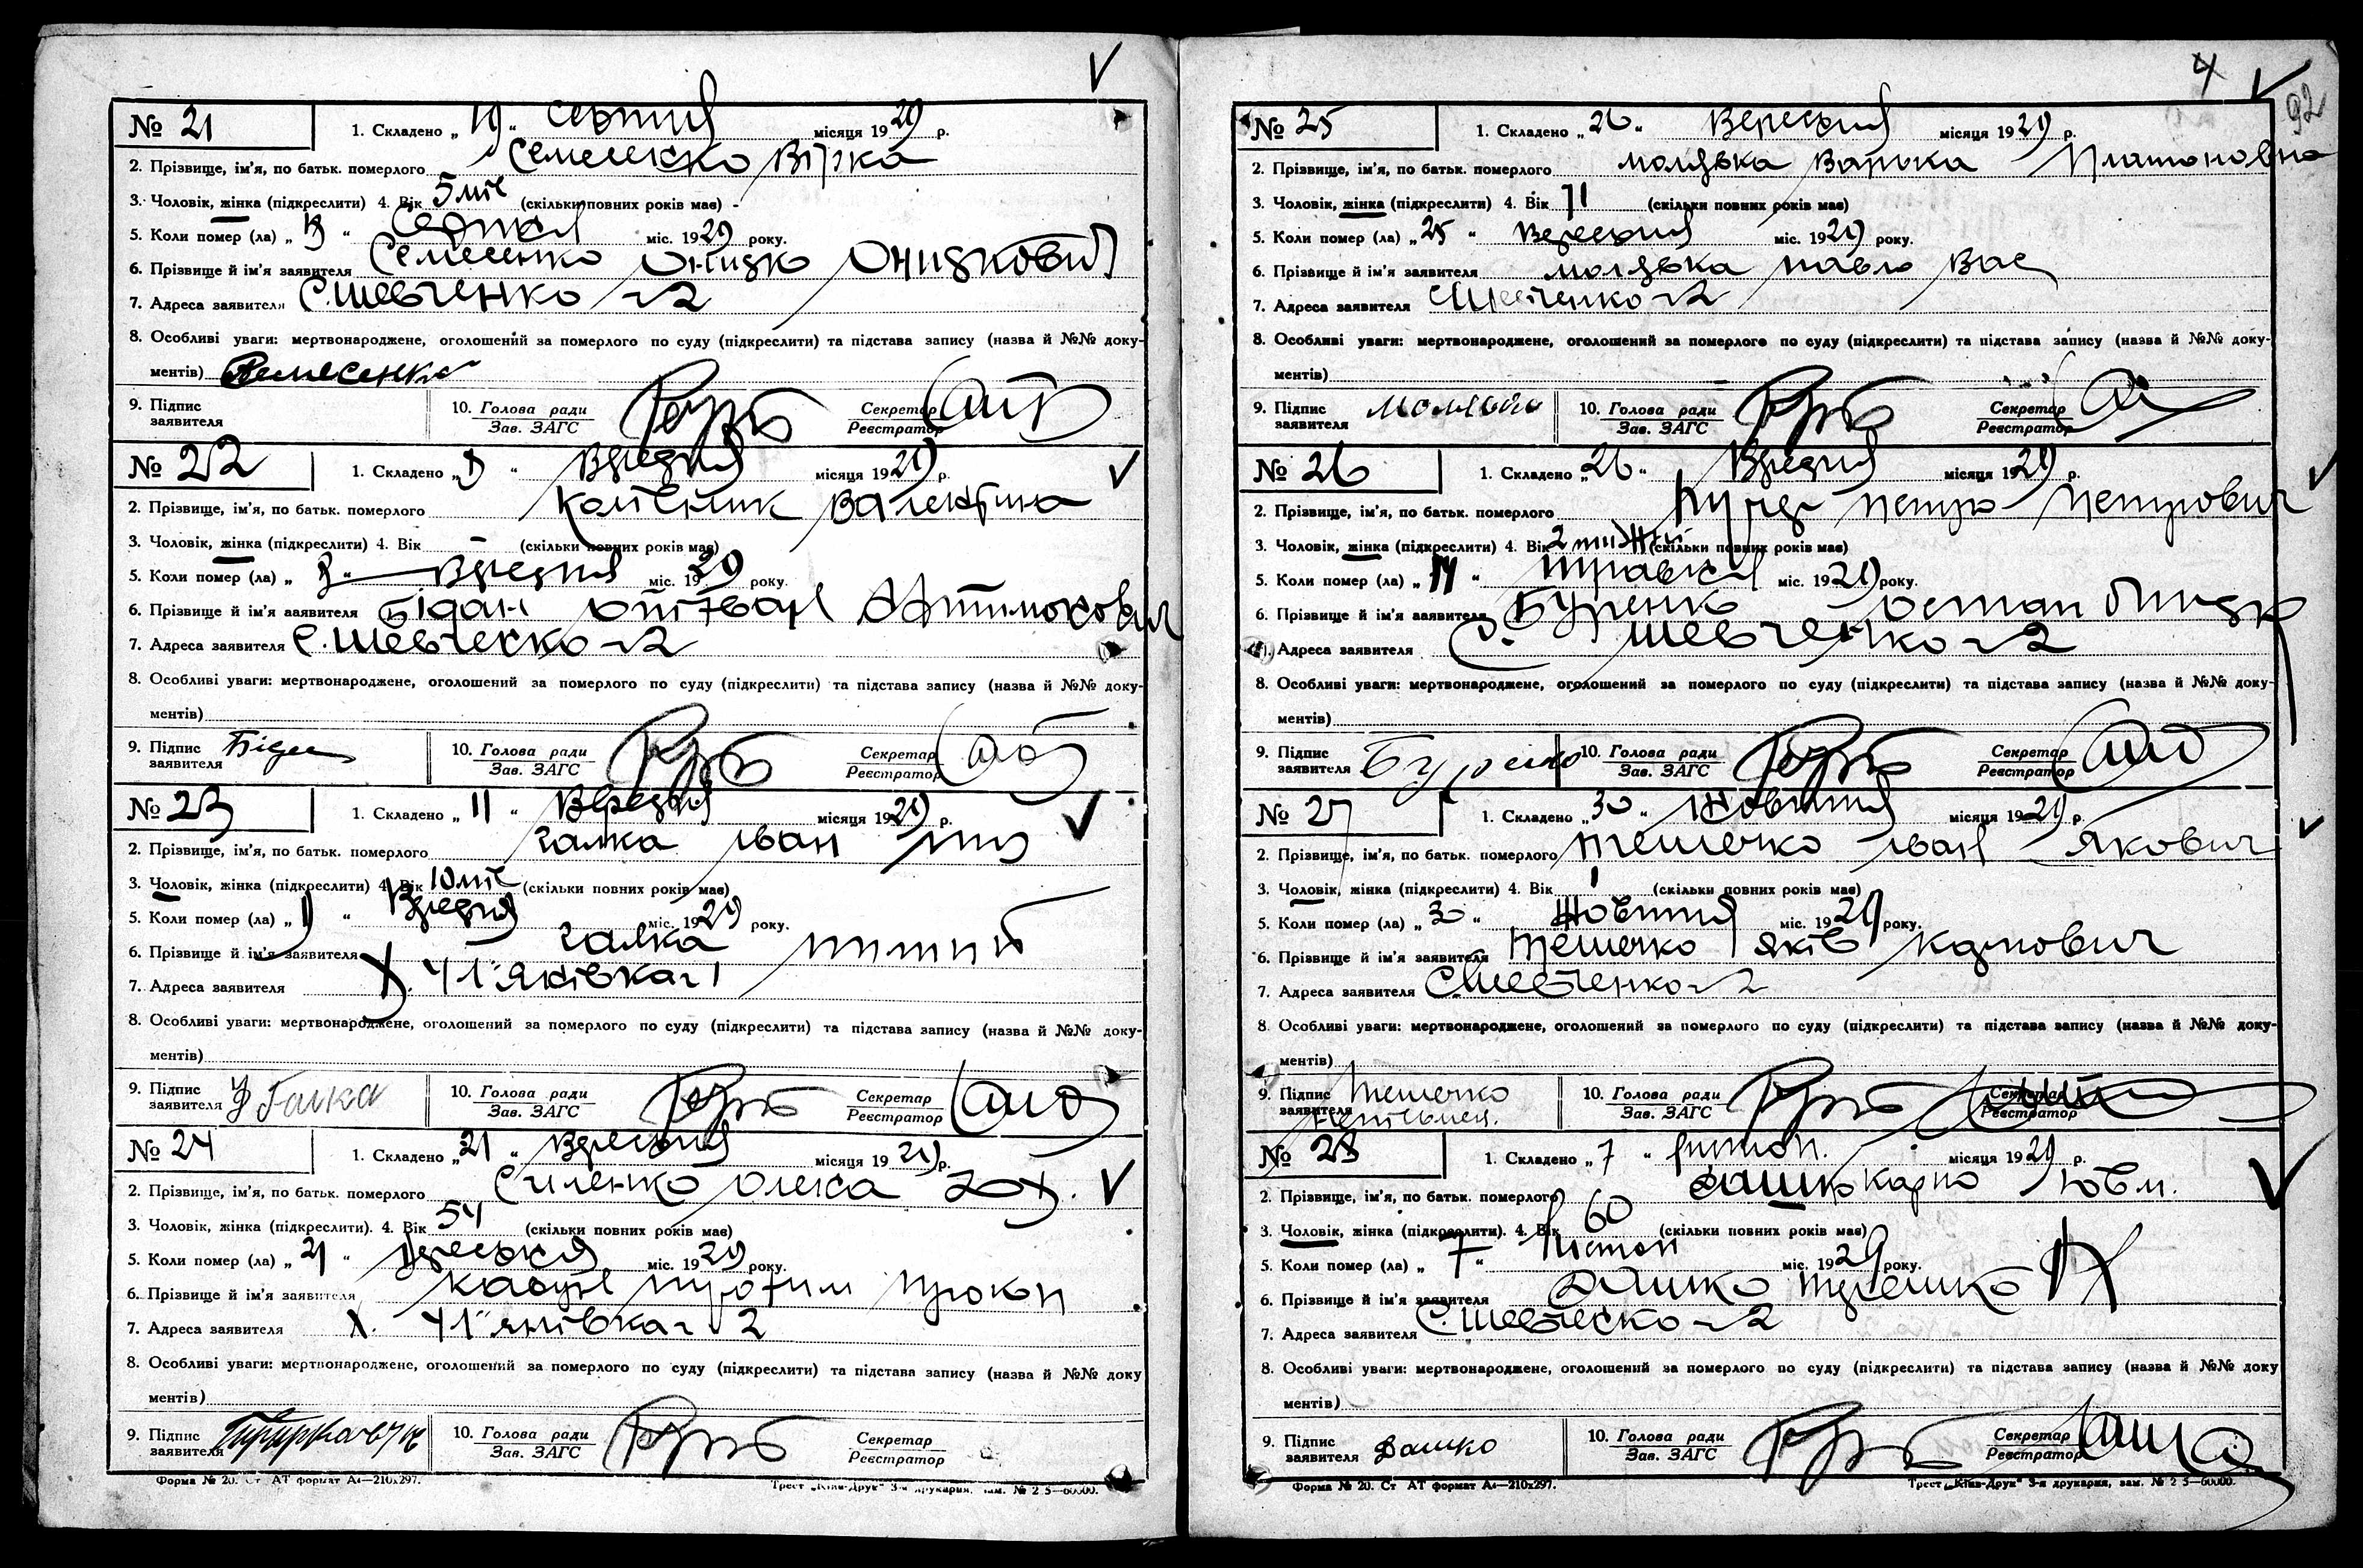 № 21
1. Складено „ 19 “ серпня місяця 1929 р.
2. Прізвище, ім'я, по батьк. померлого Семесенко Вірка
3. Чоловік, жінка (підкреслити) 4. Вік 5 міс (скільки повних років має)
5. Коли помер (ла) „ “ Серпня міс. 1929 року.
6. Прізвище й ім'я заявителя Семесенко Онисько Ониськович
7. Адреса заявителя С. Шевченко 2
8. Особливі уваги: мертвонароджене, оголошений за померлого по суду (підкреслити) та підстава запису (назва й №№ доку-
ментів) Семесенко
9. Підпис заявителя
10. Голова ради Зав. ЗАГС
Секретар Реєстратор
№ 22
1. Складено „ “ Вересня місяця 1929 р.
2. Прізвище, ім'я, по батьк. померлого Валентина
3. Чоловік, жінка (підкреслити) 4. Вік - (скільки повних років має)
5. Коли помер (ла) „ “ Вересня міс. 1929 року.
6. Прізвище й ім'я заявителя Бідан
7. Адреса заявителя С. Шевченко 2
8. Особливі уваги: мертвонароджене, оголошений за померлого по суду (підкреслити) та підстава запису (назва й №№ доку-
ментів)
9. Підпис заявителя Бідан
10. Голова ради Зав. ЗАГС
Секретар Реєстратор
№ 23
1. Складено „ 11 “ Вересня місяця 1929 р.
2. Прізвище, ім'я, по батьк. померлого Галка Іван
3. Чоловік, жінка (підкреслити) 4. Вік 10 міс (скільки повних років має)
5. Коли помер (ла) „ “ Вересня міс. 1929 року.
6. Прізвище й ім'я заявителя Галка
7. Адреса заявителя Х.
8. Особливі уваги: мертвонароджене, оголошений за померлого по суду (підкреслити) та підстава запису (назва й №№ доку-
ментів)
9. Підпис заявителя Галка
10. Голова ради Зав. ЗАГС
Секретар Реєстратор
№ 24
1. Складено „ 21 “ Вересня місяця 1929 р.
2. Прізвище, ім'я, по батьк. померлого Силенко Олекса
3. Чоловік, жінка (підкреслити). 4. Вік 54 (скільки повних років має)
5. Коли помер (ла) „ 21 “ Вересня міс. 1929 року.
6. Прізвище й ім'я заявителя Прокоп
7. Адреса заявителя Х. 2
8. Особливі уваги: мертвонароджене, оголошений за померлого по суду (підкреслити) та підстава запису (назва й №№ доку
ментів)
9. Підпис заявителя
10. Голова ради Зав. ЗАГС
Секретар Реєстратор
Форма № 20. Ст АТ формат А4—210х297.
Трест „Київ-Друк“ 3-я друкарня, зам. № 2 5—60000.
4
92
№ 25
1. Складено „ 26 “ Вересня місяця 1929 р.
2. Прізвище, ім'я, по батьк. померлого Молявка Варька Платоновна
3. Чоловік, жінка (підкреслити) 4. Вік 71 (скільки повних років має)
5. Коли помер (ла) „ 25 “ Вересня міс. 1929 року.
6. Прізвище й ім'я заявителя Молявка Павло Вас
7. Адреса заявителя С. Шевченко 2
8. Особливі уваги: мертвонароджене, оголошений за померлого по суду (підкреслити) та підстава запису (назва й №№ доку-
ментів)
9. Підпис заявителя Молявка
10. Голова ради Зав. ЗАГС
Секретар Реєстратор
№ 26
1. Складено „ 26 “ Вересня місяця 1929 р.
2. Прізвище, ім'я, по батьк. померлого Петро Петрович
3. Чоловік, жінка (підкреслити) 4. Вік 2 тижні (скільки повних років має)
5. Коли помер (ла) „ “ травня міс. 1929 року.
6. Прізвище й ім'я заявителя Буренко Остап
7. Адреса заявителя С. Шевченко 2
8. Особливі уваги: мертвонароджене, оголошений за померлого по суду (підкреслити) та підстава запису (назва й №№ доку-
ментів)
9. Підпис заявителя Буренко
10. Голова ради Зав. ЗАГС
Секретар Реєстратор
№ 27
1. Складено „ 30 “ Жовтня місяця 1929 р.
2. Прізвище, ім'я, по батьк. померлого Темечко Іван Якович
3. Чоловік, жінка (підкреслити) 4. Вік 1 (скільки повних років має)
5. Коли помер (ла) „ 30 “ Жовтня міс. 1929 року.
6. Прізвище й ім'я заявителя Темечко Яків Карпович
7. Адреса заявителя С. Шевченко 2
8. Особливі уваги: мертвонароджене, оголошений за померлого по суду (підкреслити) та підстава запису (назва й №№ доку-
ментів)
9. Підпис заявителя Темечко
10. Голова ради Зав. ЗАГС
Секретар Реєстратор
№ 28
1. Складено „ 7 “ листоп. місяця 1929 р.
2. Прізвище, ім'я, по батьк. померлого Дашко Карпо
3. Чоловік, жінка (підкреслити). 4. Вік 60 (скільки повних років має)
5. Коли помер (ла) „ 7 “ Листоп міс. 1929 року.
6. Прізвище й ім'я заявителя Дашко Терешко К
7. Адреса заявителя С. Шевченко 2
8. Особливі уваги: мертвонароджене, оголошений за померлого по суду (підкреслити) та підстава запису (назва й №№ доку
ментів)
9. Підпис заявителя Дашко
10. Голова ради Зав. ЗАГС
Секретар Реєстратор
Форма № 20. Ст АТ формат А4—210х297.
Трест „Київ-Друк“ 3-я друкарня, зам. № 2 5—60000.